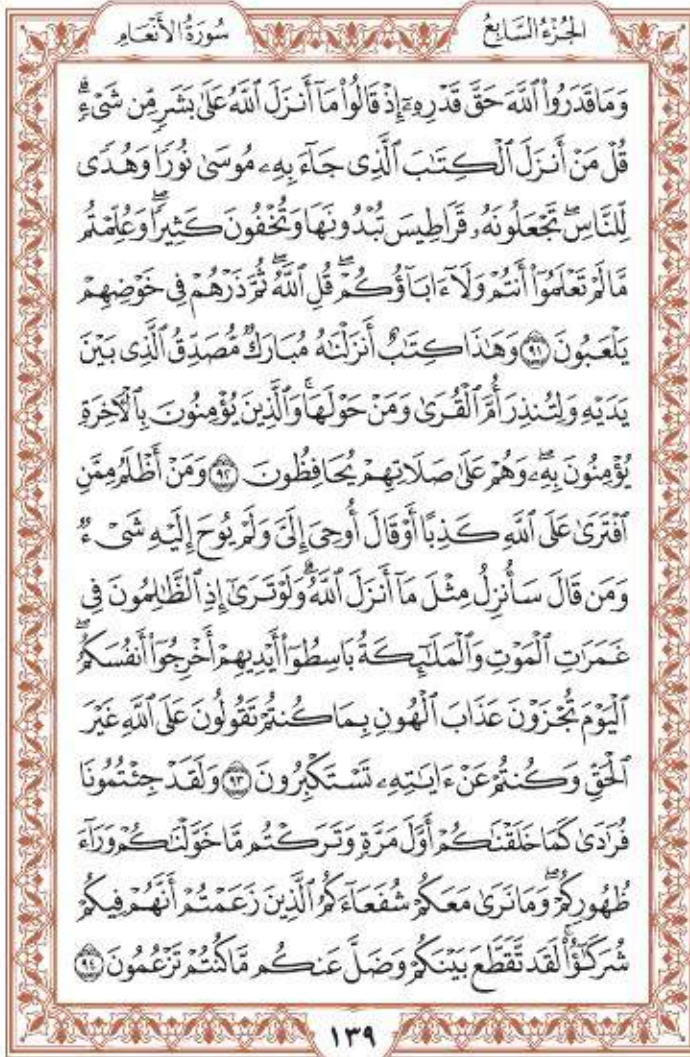 الجُزْءُ السَّابِعُ
سُورَةُ الأَنْعَامِ
وَمَا قَدَرُوا۟ ٱللَّهَ حَقَّ قَدْرِهِۦٓ إِذْ قَالُوا۟ مَآ أَنزَلَ ٱللَّهُ عَلَىٰ بَشَرٍ مِّن شَىْءٍۗ
قُلْ مَنْ أَنزَلَ ٱلْكِتَٰبَ ٱلَّذِى جَآءَ بِهِۦ مُوسَىٰ نُورًا وَهُدًى
لِّلنَّاسِۖ تَجْعَلُونَهُۥ قَرَاطِيسَ تُبْدُونَهَا وَتُخْفُونَ كَثِيرًاۖ وَعُلِّمْتُم
مَّا لَمْ تَعْلَمُوٓا۟ أَنتُمْ وَلَآ ءَابَآؤُكُمْۖ قُلِ ٱللَّهُۖ ثُمَّ ذَرْهُمْ فِى خَوْضِهِمْ
يَلْعَبُونَ ٩١ وَهَٰذَا كِتَٰبٌ أَنزَلْنَٰهُ مُبَارَكٌ مُّصَدِّقُ ٱلَّذِى بَيْنَ
يَدَيْهِ وَلِتُنذِرَ أُمَّ ٱلْقُرَىٰ وَمَنْ حَوْلَهَاۚ وَٱلَّذِينَ يُؤْمِنُونَ بِٱلْءَاخِرَةِ
يُؤْمِنُونَ بِهِۦۖ وَهُمْ عَلَىٰ صَلَاتِهِمْ يُحَافِظُونَ ٩٢ وَمَنْ أَظْلَمُ مِمَّنِ
ٱفْتَرَىٰ عَلَى ٱللَّهِ كَذِبًا أَوْ قَالَ أُوحِىَ إِلَىَّ وَلَمْ يُوحَ إِلَيْهِ شَىْءٌ
وَمَن قَالَ سَأُنزِلُ مِثْلَ مَآ أَنزَلَ ٱللَّهُۗ وَلَوْ تَرَىٰٓ إِذِ ٱلظَّٰلِمُونَ فِى
غَمَرَٰتِ ٱلْمَوْتِ وَٱلْمَلَٰٓئِكَةُ بَاسِطُوٓا۟ أَيْدِيهِمْ أَخْرِجُوٓا۟ أَنفُسَكُمُۖ
ٱلْيَوْمَ تُجْزَوْنَ عَذَابَ ٱلْهُونِ بِمَا كُنتُمْ تَقُولُونَ عَلَى ٱللَّهِ غَيْرَ
ٱلْحَقِّ وَكُنتُمْ عَنْ ءَايَٰتِهِۦ تَسْتَكْبِرُونَ ٩٣ وَلَقَدْ جِئْتُمُونَا
فُرَٰدَىٰ كَمَا خَلَقْنَٰكُمْ أَوَّلَ مَرَّةٍ وَتَرَكْتُم مَّا خَوَّلْنَٰكُمْ وَرَآءَ
ظُهُورِكُمْۖ وَمَا نَرَىٰ مَعَكُمْ شُفَعَآءَكُمُ ٱلَّذِينَ زَعَمْتُمْ أَنَّهُمْ فِيكُمْ
شُرَكَٰٓؤُا۟ۚ لَقَد تَّقَطَّعَ بَيْنَكُمْ وَضَلَّ عَنكُم مَّا كُنتُمْ تَزْعُمُونَ ٩٤
١٣٩